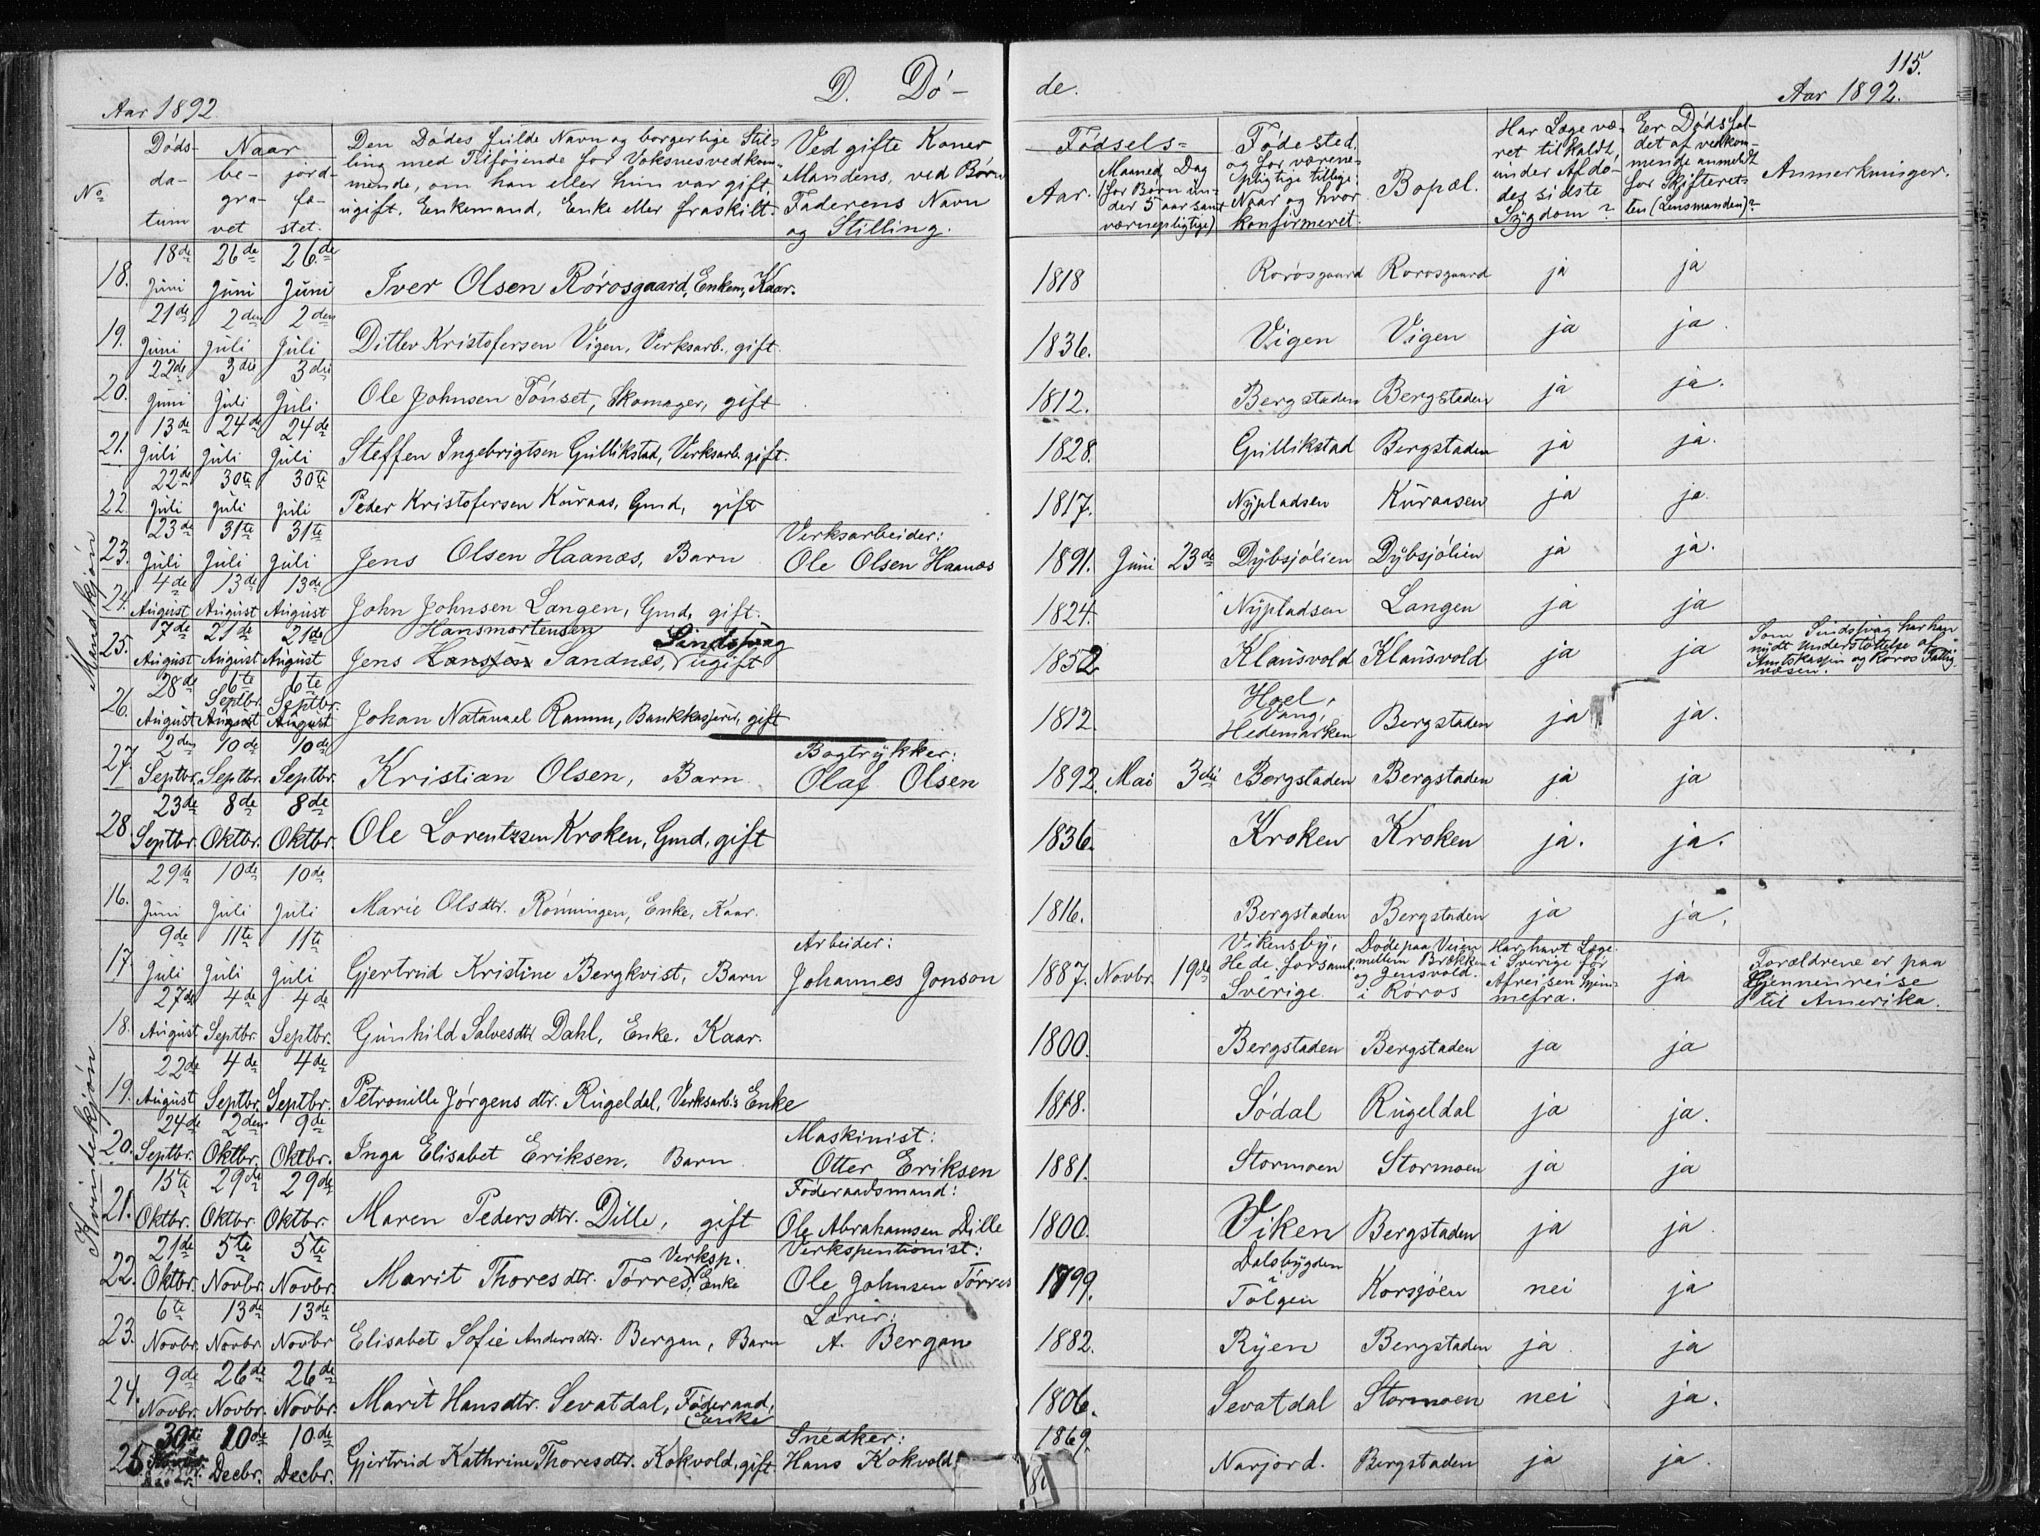 115.
D. Dö-
de.
Aar 1892
Aar 1892.
No
Döds-
da-
tum
Naar
be-
gra-
vet
jord-
fæ-
stet.
Den Dödes fulde Navn og borgerlige Stil-
ling med Tilföiende for Voksnes vedkom-
mende, om han eller hun var gift,
ugift, Enkemand, Enke eller fraskilt.
Ved gifte Koner
Mandens, ved Börn
Faderens Navn
og Stilling.
Födsels-
Aar.
Maaned Dag
(for Børn un-
der 5 aar samt
værnepligtige)
Födested,
og for værne-
pligtige tillige:
Naar og hvor
konfirmeret.
Bopæl.
Har Læge væ-
ret tilkaldt,
under Afdö-
des sidste
Sygdom?
Er Dödsfal-
det af vedkom-
mende anmeldt
for Skifteret-
ten (Lensmanden)?
Anmerkninger.
Mandkjön
18. 18de Juni 26de Juni 26de Juni Iver Olsen Rörosgaard, Enkem, Kaar. 1818 Rorosgaard Rorosgaard ja ja
19. 21de Juni 2den Juli 2den Juli Ditlev Kristofersen Vigen, Verksarb., gift. 1836. Vigen Vigen ja ja.
20. 22de Juni 3die Juli 3die Juli Ole Johnsen Tönset, Skomager, gift 1812. Bergstaden Bergstaden ja ja.
21. 13de Juli 24de Juli 24de Juli Steffen Ingebrigtsen Gullikstad, Verksarb. gift. 1828. Gullikstad Bergstaden ja ja.
22 22de Juli 30te Juli 30te Juli Peder Kristofersen Kuraas, Gmd, gift 1817. Nypladsen Kuraasen ja ja
23. 23de Juli 31te Juli 31te Juli Jens Olsen Haanæs, Barn Verksarbeider: Ole Olsen Haanæs 1891. Juni 23de Dybsjölien Dybsjölien ja ja.
24. 4de August 13de August 13de August John Johnsen Langen, Gmd, gift. 1824. Nypladsen Langen ja ja
25. 7de August 21de August 21de August Jens Hansmortensen Sandnæs, Sindssvag ugift 1852 Klausvold Klausvold ja ja Som Sindssvag har han
nydt Understøttelse af
Amtskassen og Roros Fattig
væsen.
26. 28de August 6te Septbr. August 6te Septbr. August Johan Natanael Ramm, Bankkasserer, gift 1812 Hoel,
Vang,
Hedemarken Bergstaden ja ja.
27. 2den Septbr. 10de Septbr. 10de Septbr. Kristian Olsen, Barn Bogtrykker: Olaf Olsen 1892. Mai 3die Bergstaden Bergstaden ja ja
28. 23de Septbr. 8de Oktbr. 8de Oktbr. Ole Lorentzsen Kroken, Gmd, gift 1836. Kroken Kroken ja. ja.
Kvindekjön
16. 29de Juni 10de Juli 10de Juli Marie Olsdtr. Rönningen, Enke, Kaar. 1816. Bergstaden Bergstaden ja ja,
17. 9de Juli 11te Juli 11te Juli Gjertrud Kristine Bergkvist, Barn Arbeider: Johannes Jonson 1887. Novbr. 19de Vikensby,
Hede forsaml.
Sverige Döde paa Veien
mellem Brækken
og Jensvold
i Röros Har havt Læge
i Sverige før
Afreisen hjem-
mefra. ja Forældrene er paa
Gjennemreise
til Amerika.
18. 27de August 4de Septbr. 4de Septbr. Gunhild Salvesdtr Dahl, Enke. Kaar. 1800. Bergstaden Bergstaden ja ja
19. 22de August 4de Septbr. 4de Septbr. Petronille Jörgensdtr. Rugeldal, Verksarb's Enke 1818. Södal Rugeldal ja ja.
20. 24de Septbr. 2den Oktbr. 9de Oktbr. Inga Elisabet Eriksen, Barn Maskinist: Otter Eriksen 1881. Stormoen Stormoen ja ja
21. 15te Oktbr. 29de Oktbr. 29de Oktbr. Maren Pedersdtr. Dille, gift Föderaadsmand: Ole Abrahamsen Dille 1800. Viken Bergstaden ja ja.
22. 21de Oktbr. 5te Novbr. 5te Novbr. Marit Thoresdtr. Törres, Verksp. Enke Verkspentionist: Ole Johnsen Törres 1799. Dalsbygden
i
Tolgen Korsjöen nei ja
23. 6te Novbr. 13de Novbr. 13de Novbr Elisabet Sofie Andersdtr. Bergan, Barn Lærer: A. Bergan 1882. Ryen Bergstaden ja ja
24. 9de Novbr. 26de Novbr. 26de Novbr. Marit Hansdtr. Sevatdal, Föderaad, Enke 1806. Sevatdal Stormoen nei ja.
25 30te 10de Decbr. 10de Decbr. Gjertrud Kathrine Thoresdtr. Kokvold, gift. Snedker: Hans Kokvold 1869. Narjord. Bergstaden ja ja.